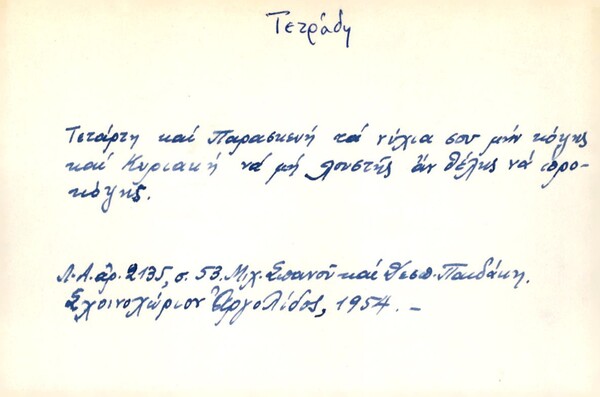 Τετράδη
Τετάρτη καί Παρασκευή τά νύχια σου μήν κόψης
καί Κυριακή νά μή λουστῆς ἄν θέλης νά προ-
κόψῃς.
Λ.Α. ἀρ. 2135, σ. 53. Μιχ. Σπανοῦ καί Δεσπ. Παιδάκη.
Σχοινοχώριον Ἀργολίδος, 1954. –